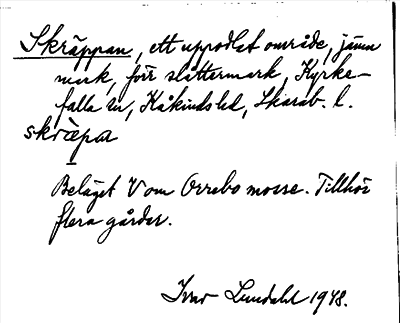 Skräppan, ett uppodlat område, jämn
mark, förr slåttermark, Kyrke-
falla sn, Kåkinds hd, Skarab. l.
skræpa
Beläget V om Orrebo mosse. Tillhör
flera gårdar.
Ivar Lundahl 1948.